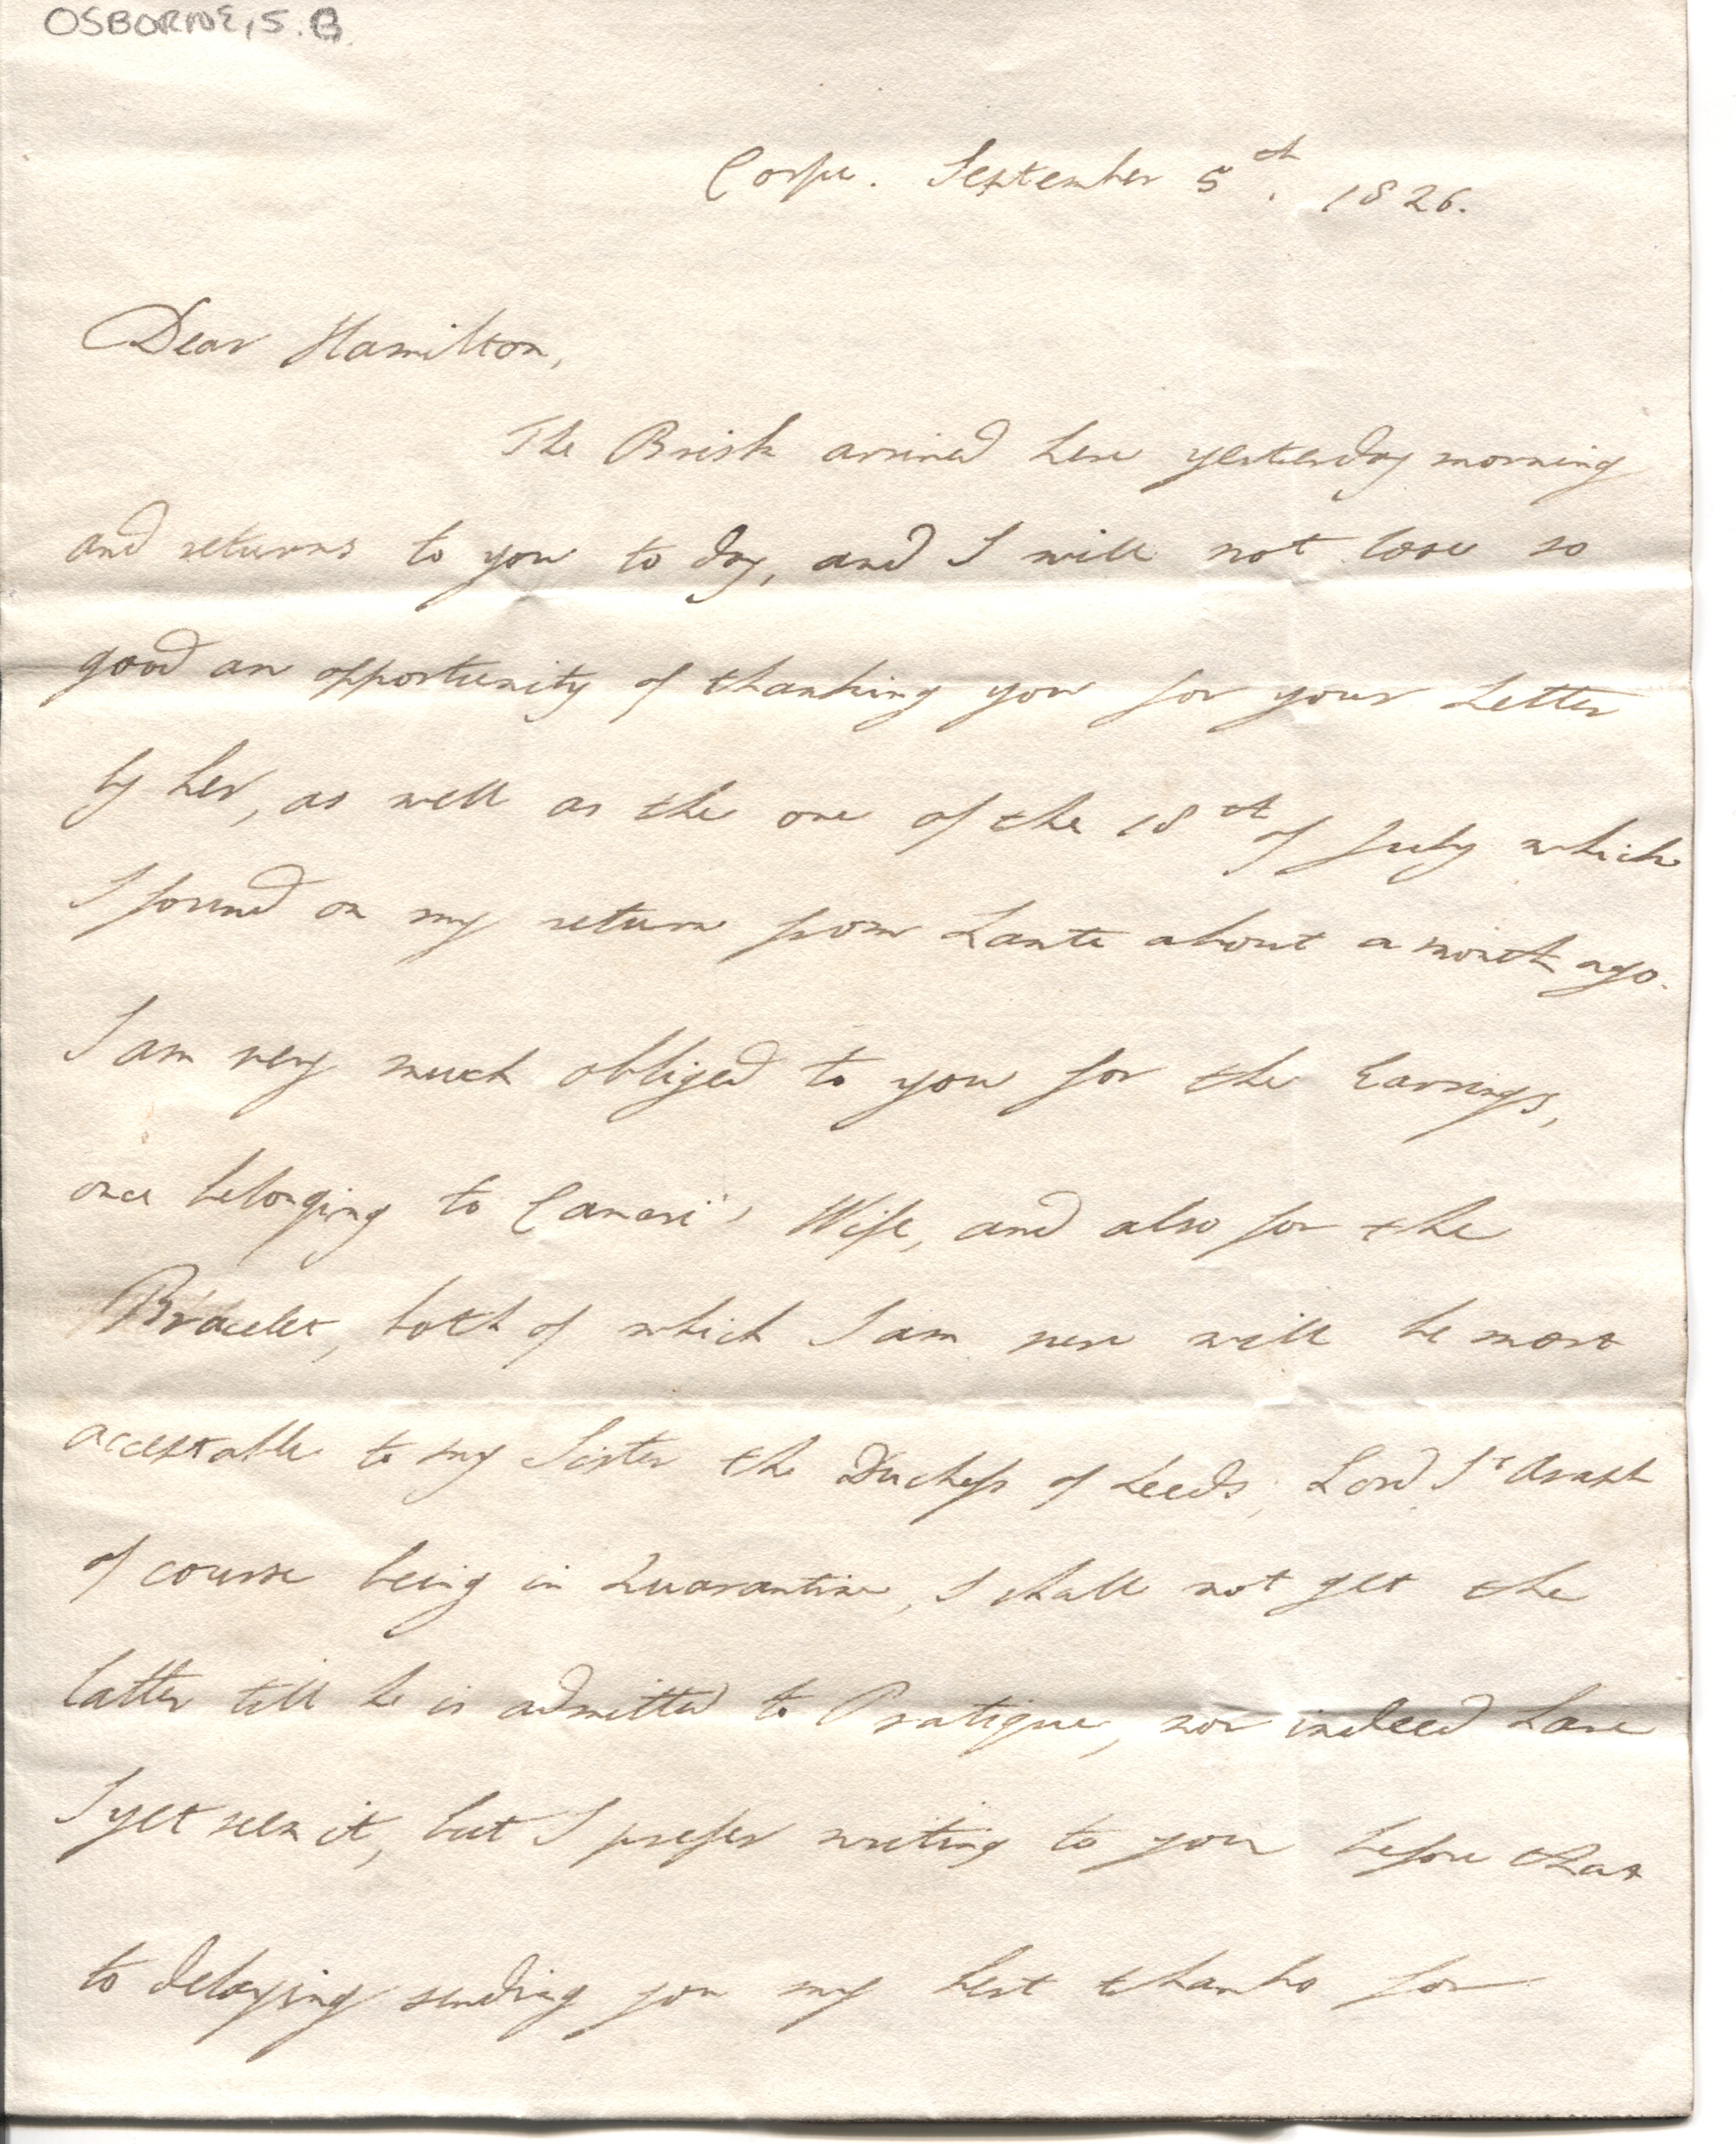 OSBORNE, S.B.
Corfu. September 5th. 1826.
Dear Hamilton,
The Brisk arrived here yesterday morning
and returns to you to day, and I will not lose so
good an opportunity of thanking you for your Letter
by her, as well as the one of the 18th of July which
I found on my return from Zante about a month ago.
I am very much obliged to you for the Earrings,
once belonging to Canari's Wife, and also for the
Bracelet, both of which I am sure will be most
acceptable to my Sister the Duchess of Leeds; Lord St Asaph
of course being in Quarantine, I shall not get the
latter till he is admitted to Pratique, nor indeed have
I yet seen it, but I prefer writing to you before that
to delaying sending you my best thanks for